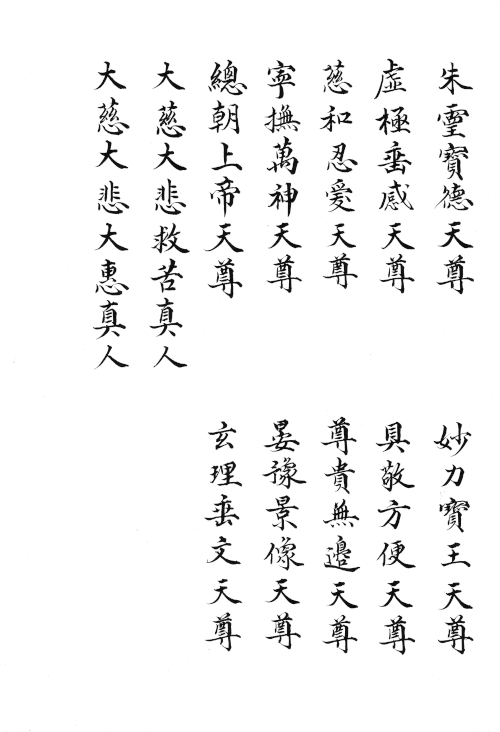 朱靈寶德天尊
妙力寶王天尊
虛極垂感天尊
具敬方便天尊
慈和忍愛天尊
尊貴無邊天尊
寧撫萬神天尊
晏豫景像天尊
總朝上帝天尊
玄理垂文天尊
大慈大悲救苦真人
大慈大悲大惠真人